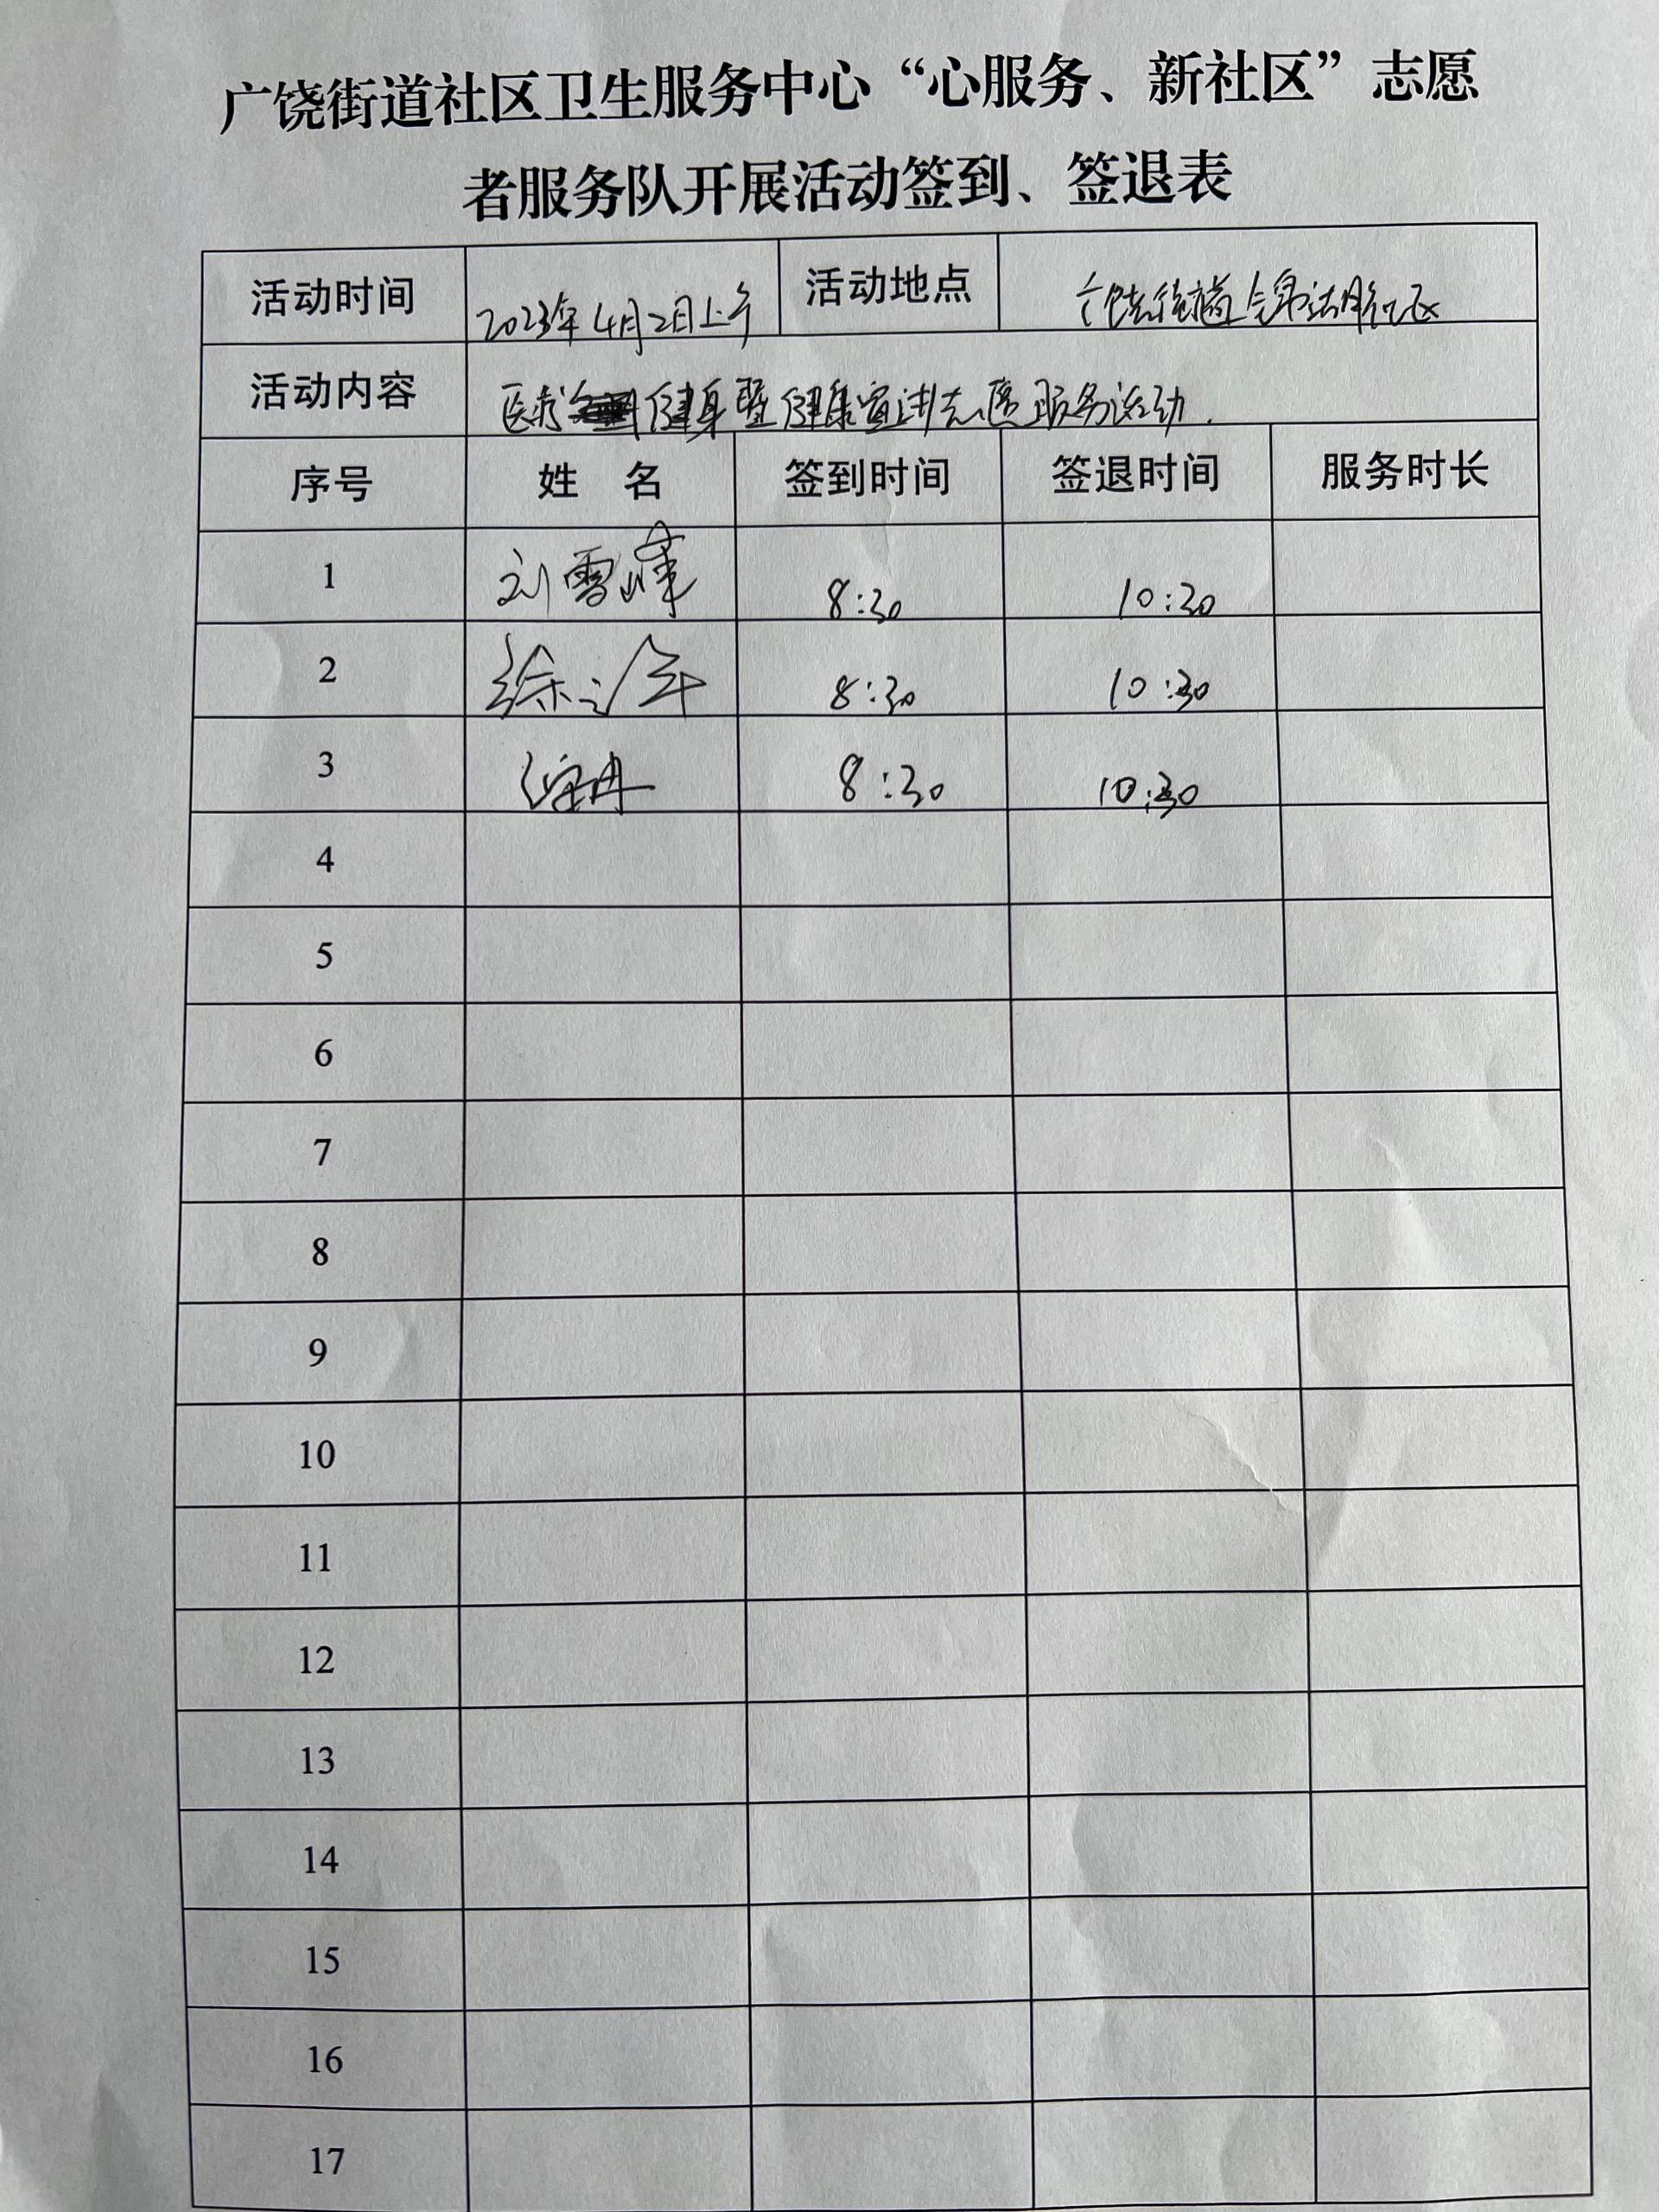 广饶街道社区卫生服务中心“心服务、新社区”志愿
者服务队开展活动签到、签退表
活动时间 2023年4月2日上午 活动地点 广饶街道
活动内容 医疗健身暨健康宣讲志愿服务活动.
序号 姓 名 签到时间 签退时间 服务时长
1 刘雪峰 8:30 10:30
2 徐 8:30 10:30
3 8:30 10:30
4
5
6
7
8
9
10
11
12
13
14
15
16
17